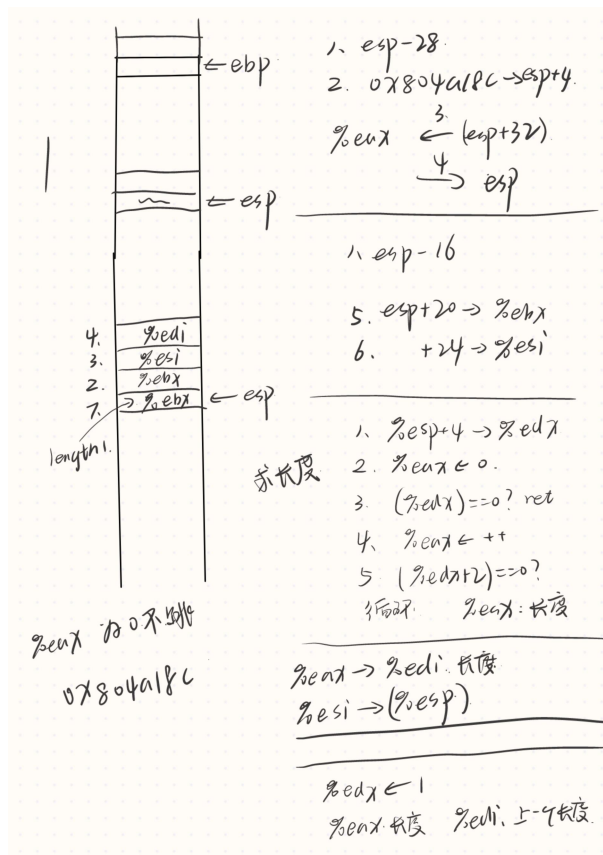 ← ebp
← esp
4. %edi
3. %esi
2. %ebx
7. %ebx ← esp
length1.
求长度
%eax 为0不跳
0x804a18c
1、esp-28
2. 0x804a18c→esp+4
3
%eax ← (esp+32)
4
→ esp
1、esp-16
5. esp+20→%ebx
6. +24→%esi
1、%esp+4→%edx
2. %eax←0.
3. (%edx)==0? ret
4、%eax←++
5 (%edx+2)==0?
循环 %eax:长度
%eax→%edi.长度
%esi→(%esp)
%edx←1
%eax.长度 %edi.上一个长度.